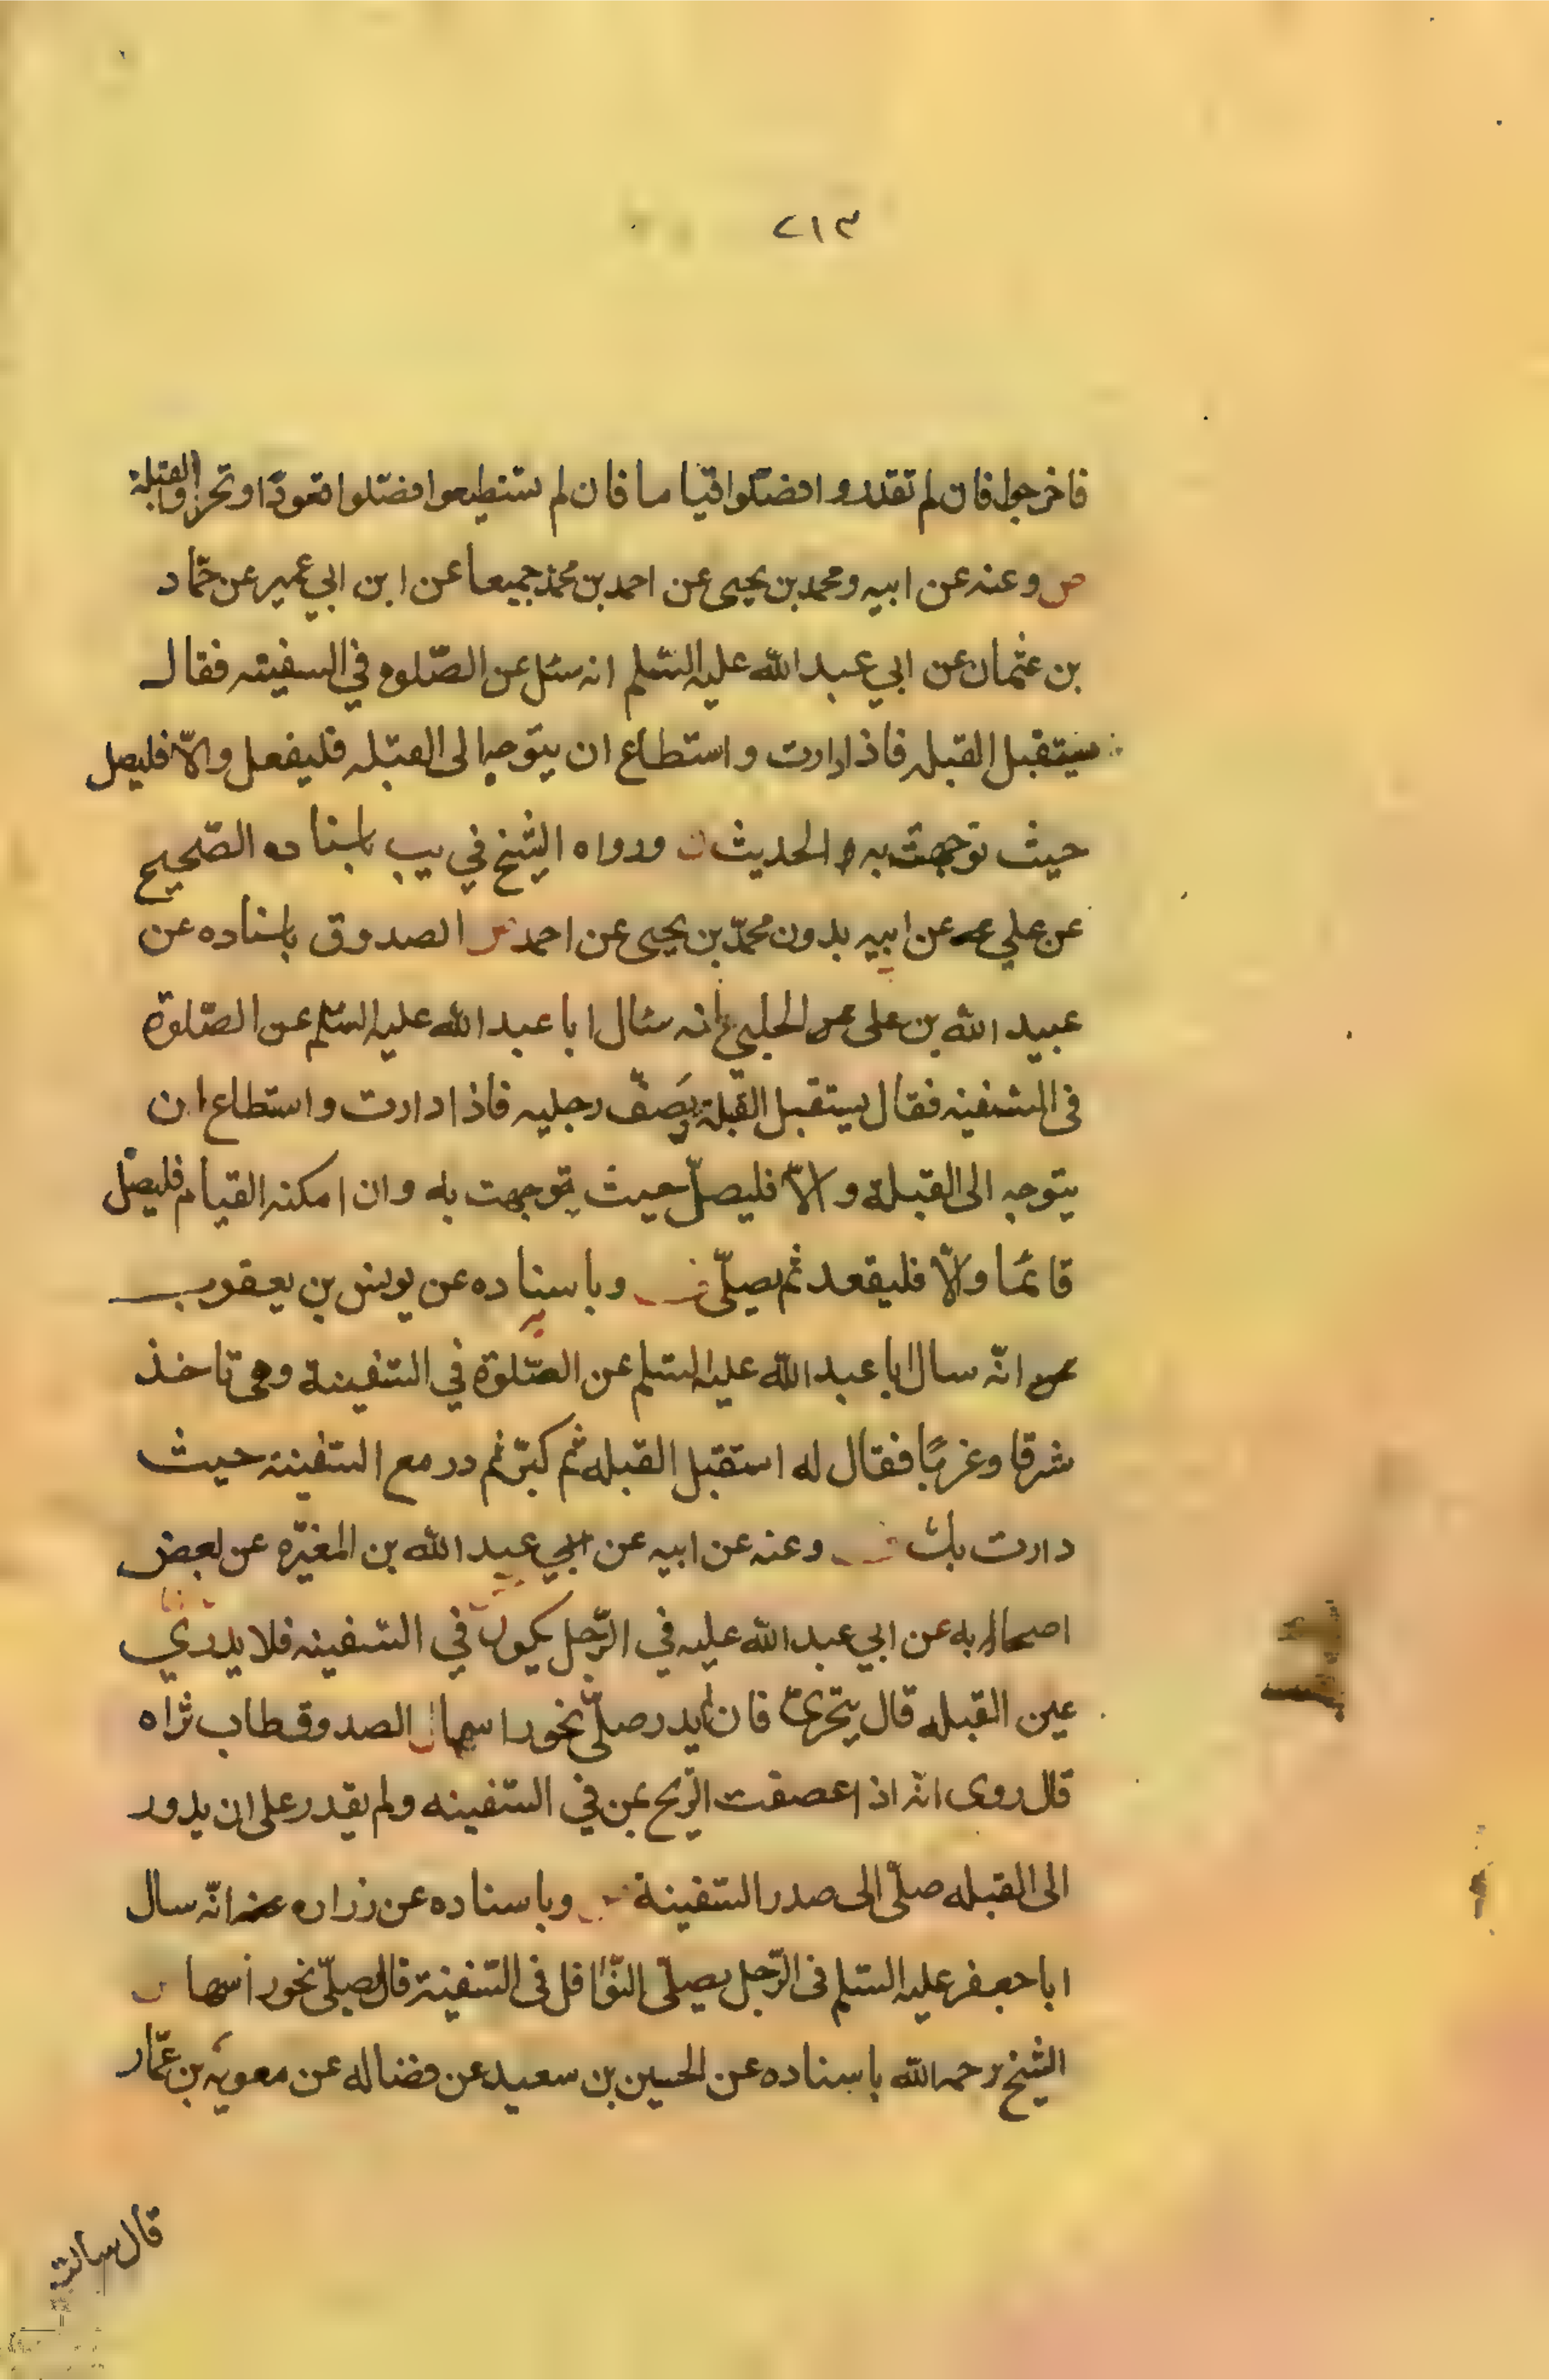 ٢١٣
فاخرجوا فان لم تقدروا فصلوا قياما فان لم تستطيعوا فصلوا قعودا وتحروا القبلة
ص وعنه عن ابيه ومحمد بن يحيى عن احمد بن محمد جميعا عن ابن ابي عمير عن حمّاد
بن عثمان عن ابي عبد الله عليه السّلم انه سئل عن الصّلوه في السفينه فقال
يستقبل القبله فاذا دارت واستطاع ان يتوجه الى القبله فليفعل والّا فليصل
حيث توجهت به الحديث ورواه الشيخ في يب باسناده الصّحيح
عن علي عن ابيه بدون محمّد بن يحيى عن احمد الصدوق باسناده عن
عبيد الله بن على الحلبي انه سئال ابا عبد الله عليه السّلم عن الصّلوة
فى السّفينه فقال يستقبل القبلة ويَصفّ رجليه فاذا دارت واستطاع ان
يتوجه الى القبلة والّا فليصلّ حيث توجهت به وان امكنه القيام فليصلّ
قائما والّا فليقعد ثم يصلّي وباسناده عن يونس بن يعقوب
انّه سال ابا عبد الله عليه السّلم عن الصّلوة في السّفينة وهى تاخذ
شرقا وغربًا فقال له استقبل القبله ثم كبّر ثم در مع السّفينه حيث
دارت بك وعنه عن ابيه عن عبد الله بن المغيّره عن بعض
اصحابه عن ابي عبد الله عليه في الرّجل يكون في السّفينه فلا يدري
عين القبله قال يتحرىّ فان لم يدر صلّى نحو راسها الصدوق طاب ثراه
قال روى انّه اذا عصفت الرّيح بمن في السّفينه ولم يقدر على ان يدور
الى القبله صلّى الى صدر السّفينة وباسناده عن زراره انّه سال
ابا جعفر عليه السّلم فى الرّجل يصلّى النّوافل فى السّفينة قال يصلّى نحو راسها
الشيخ رحمه الله باسناده عن الحسين بن سعيد عن فضاله عن معويه بن عمّار
قال سالته